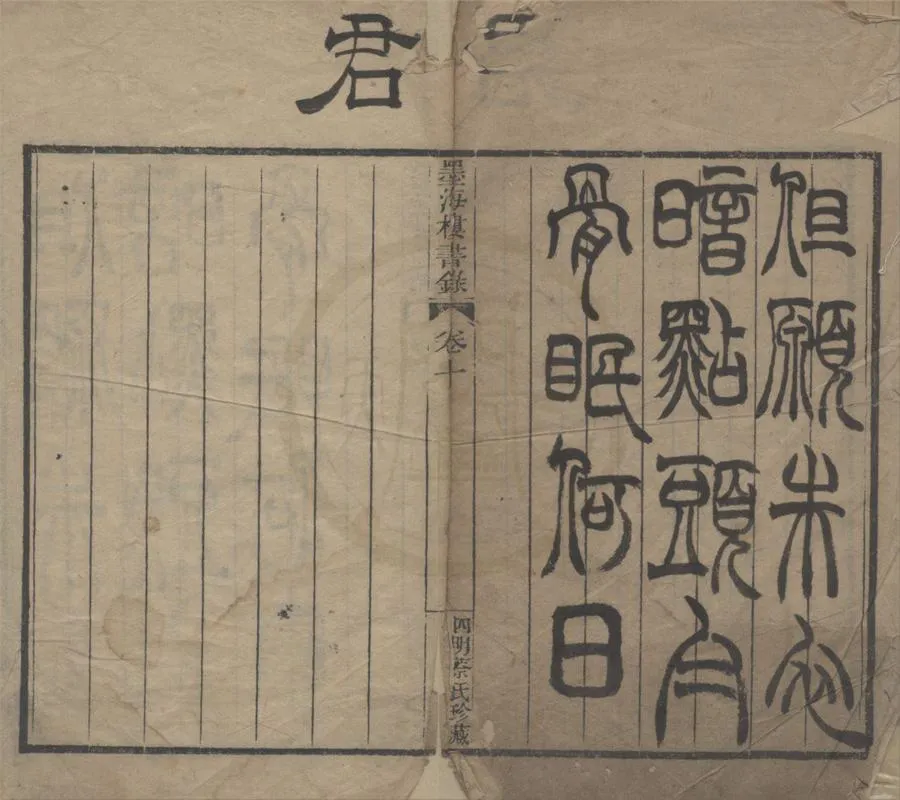 君
但願朱衣
暗點頭
骨眠何日
墨海樓書錄
卷十
四明蔡氏珍藏